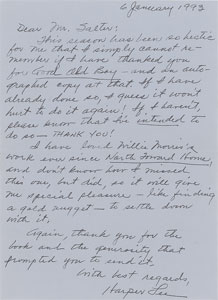 6 January 1993
Dear Mr. Salter:
This season has been so hectic
for me that I simply cannot re-
member if I have thanked you
for Good Old Boy - and an auto-
graphed copy at that. If I have
already done so I guess it won't
hurt to do it again! If I haven't,
please know that I've intended to
do so - THANK YOU!
I have loved Willie Morris's
work ever since North Toward Home,
and don't know how I missed
this one, but did, so it will give
me special pleasure - like finding
a gold nugget - to settle down
with it.
Again, thank you for the
book and the generosity that
prompted you to send it.
With best regards,
Harper Lee